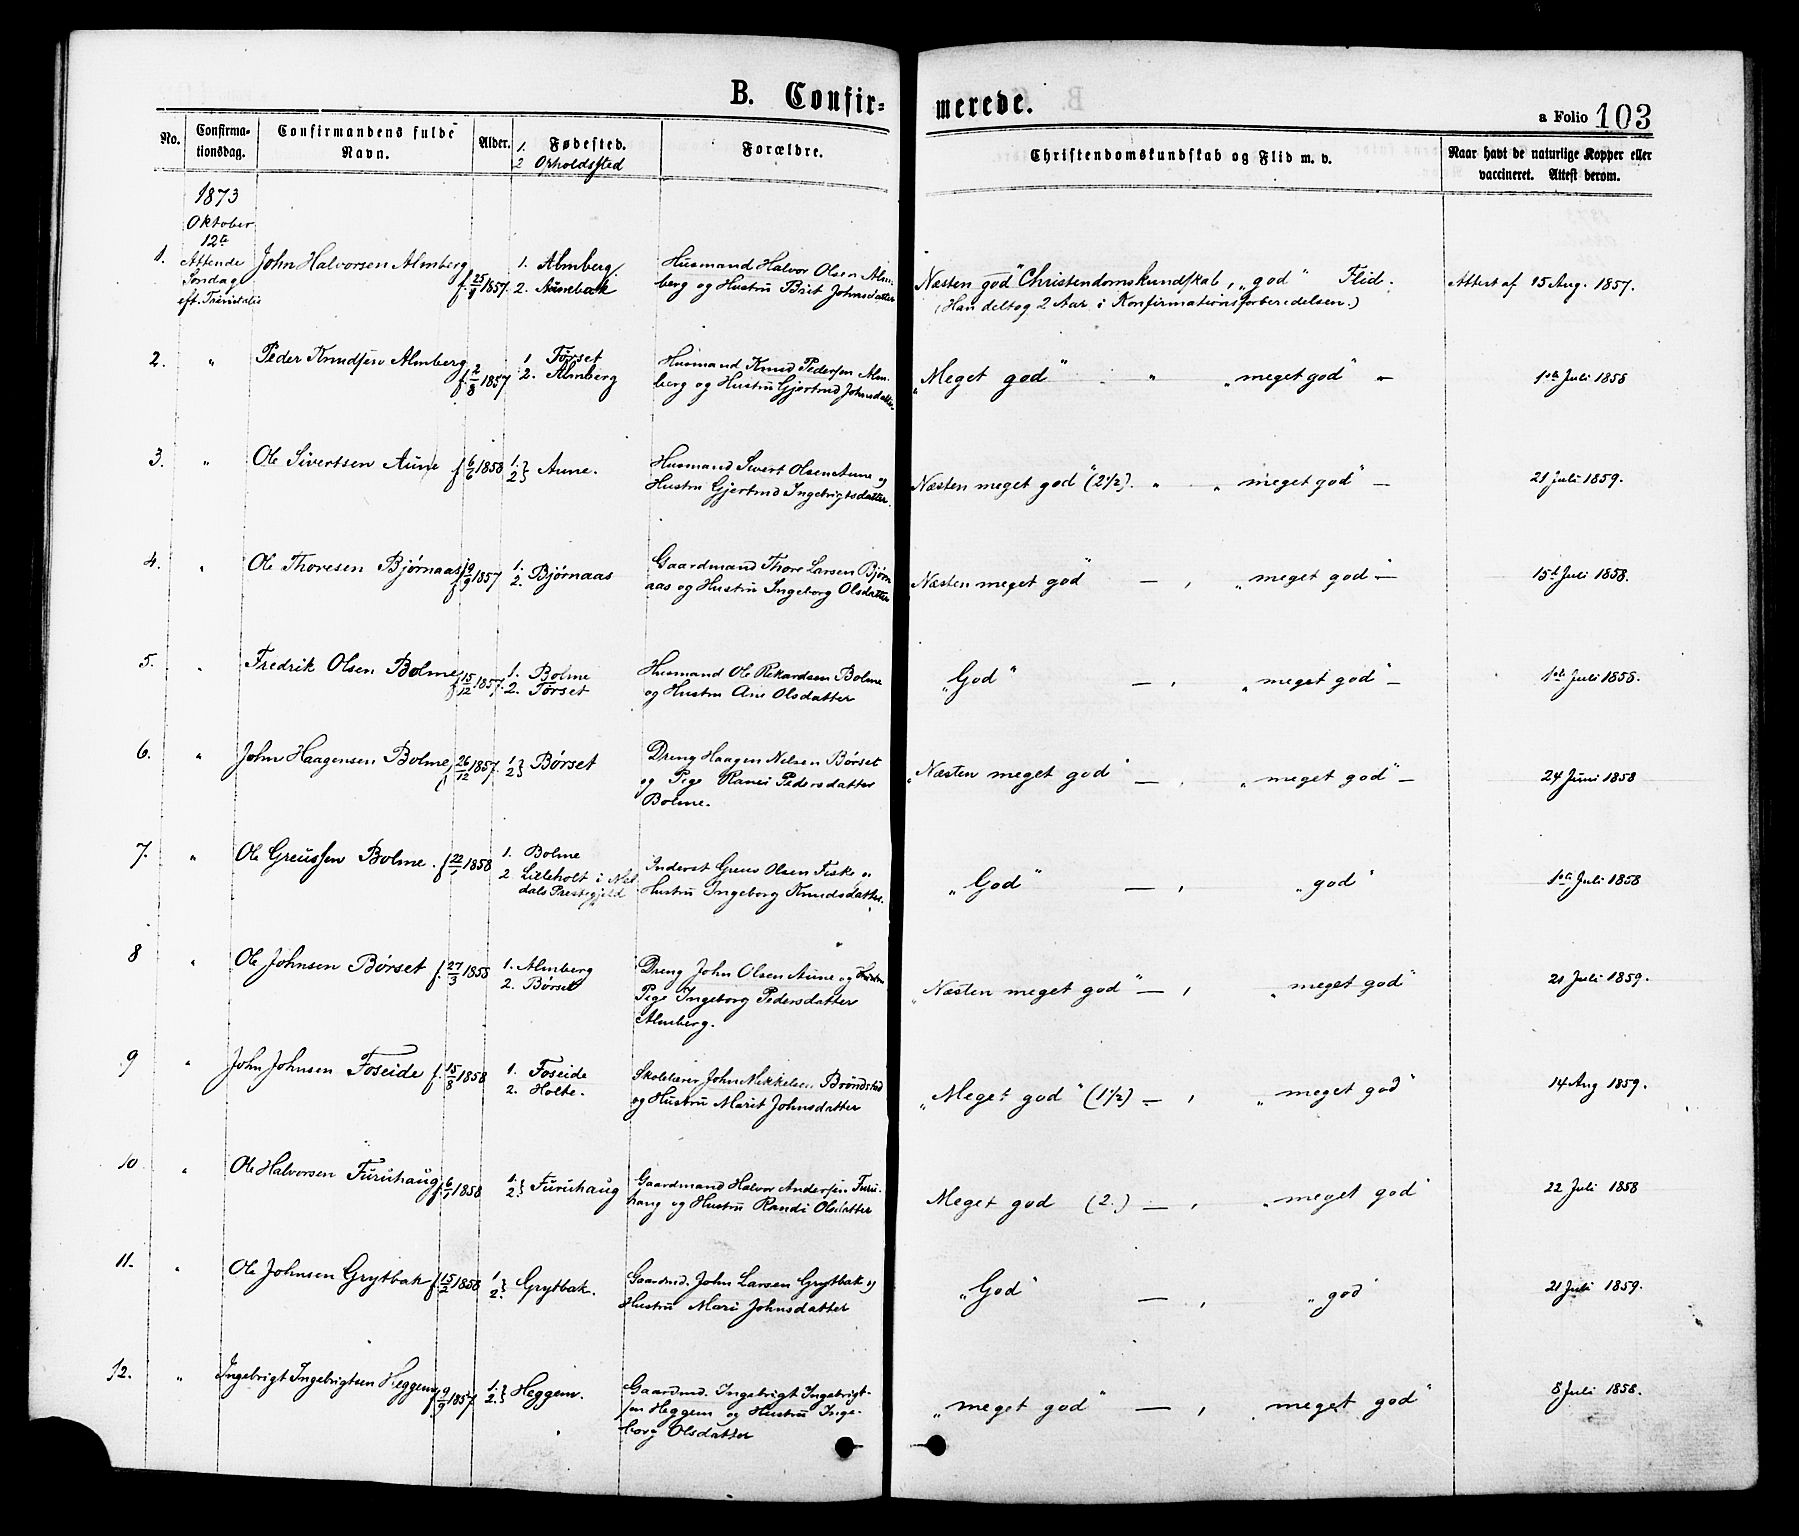 B. Confir-
merede.
a Folio 103
No.
Confirma-
tionsdag.
Confirmandens fulde
Navn.
Alder.
1. Fødested.
2 Opholdssted
Forældre.
Christendomskundskab og Flid m. v.
Naar havt de naturlige Kopper eller
vaccineret. Attest derom.
1873
Oktober
12te
1. Attende
Søndag
eft. Trinitatis
John Halvorsen Almberg
f. 25/4 1857.
1. Almberg.
2. Aunebak
Husmand Halvor Olsen Alm-
berg og Hustru Brit Johnsdatter
Næsten god" Christendomskundskab, "god" Flid.
(Han deltog 2 Aar i Konfirmationsforberedelsen.)
Attest af 15 Aug. 1857.
2. " Peder Knudsen Almberg
f. 2/8 1857
1 Tørset
2. Almberg
Husmand Knud Pedersen Alm-
berg og Hustru Gjertrud Johnsdatter
"Meget god" " "meget god" "
1ste Juli 1858
3. " Ole Sivertsen Aune f 6/6 1858
1.
2 } Aune.
Husmand Sivert Olsen Aune og
Hustru Gjertrud Ingebrigtsdatter.
Næsten meget god" (2½). " "meget god" —
21 Juli 1859.
4. " Ole Thoresen Bjørnaas f 19/9 1857
1.
2. Bjørnaas
Gaardmand Thore Larsen Bjørn
aas og Hustru Ingeborg Olsdatter
Næsten meget god" — , "meget god" —
15t Juli 1858.
5. " Fredrik Olsen Bolme f 15/12 1857.
1. Bolme
2. Tørset
Husmand Ole Rikardsen Bolme
og Hustru Ane Olsdatter
"God" — , "meget god" —
1ste Juli 1858.
6. " John Haagensen Bolme f 26/12 1857.
1
2 } Børset
Dreng Haagen Nelsen Børset
og Pige Ranei Pedersdatter
Bolme.
"Næsten meget god" — , "meget god" —
24 Juni 1858
7. " Ole Greussen Bolme. f 22/1 1858
1. Bolme
2 Lilleholt i Mel-
dals Prestegjeld
Inderst Greus Olsen Fiske og
Hustru Ingeborg Knudsdatter.
"God" — , "god"
1ste Juli 1858
8 " Ole Johnsen Børset f. 27/3 1858
1. Almberg
2. Børset
Dreng John Olsen Aune og
Pige Ingeborg Pedersdatter
Almberg.
"Næsten meget god" — , "meget god"
21 Juli 1859.
9 " John Johnsen Foseide f. 15/8 1858
1. Foseide
2. Holte.
Skolelærer John Mikkelsen Brøndstad
og Hustru Marit Johnsdatter
"Meget god" (1½) — , "meget god"
14 Aug 1859.
10 " Ole Halvorsen Furuhaug f. 6/1 1858
1.
2. } Furuhaug
Gaardmand Halvor Andersen Furu-
haug og Hustru Randi Olsdatter
Meget god (2.) — , "meget god"
22 Juli 1858
11. " Ole Johnsen Grytbak f. 15/2 1858
1
2. } Grytbak.
Gaardmd. John Larsen Grytbak og
Hustru Mari Johnsdatter
"God" — , "god"
21 Juli 1859.
12. " Ingebrigt Ingebrigtsen Heggem f 9/9 1857
1.
2. } Heggem.
Gaardmd. Ingebrigt Ingebrigt-
sen Heggem og Hustru Inge-
borg Olsdatter
"meget god" — , "meget god"
8 Juli 1858.